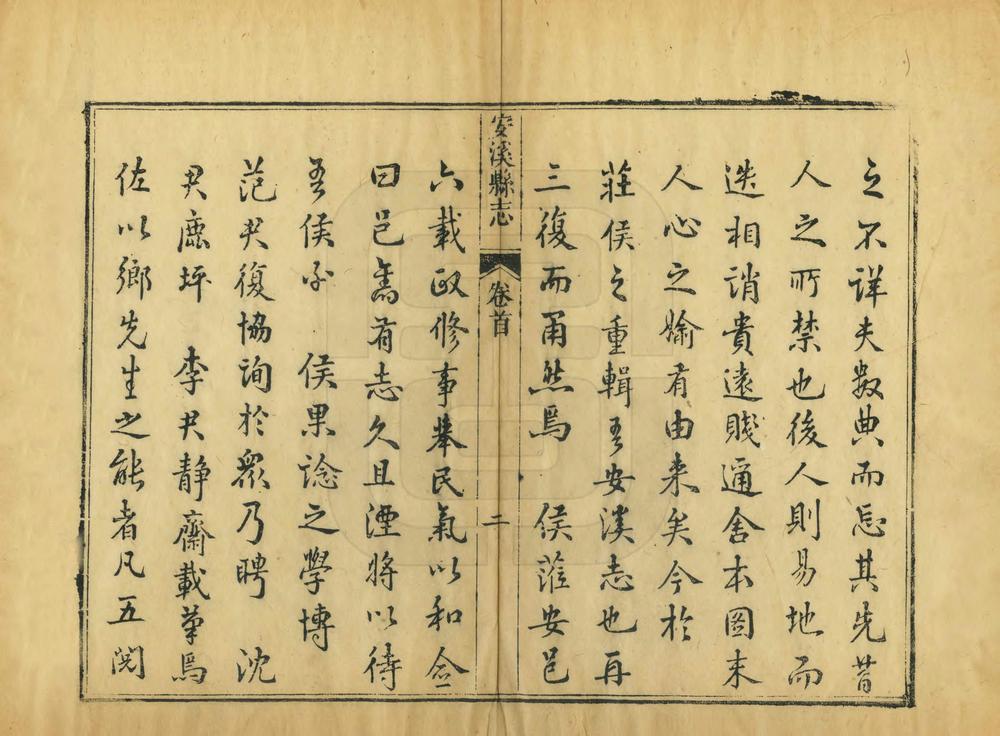 之不詳夫數典而忘其先昔
人之所禁也後人則易地而
迭相誚貴遠賤邇舍本圖末
人心之媮有由来矣今於
莊侯之重輯吾安溪志也再
三復而甬然焉　侯蒞安邑
安溪縣志
卷首
二
六載政修事舉民氣以和僉
曰邑舊有志久且湮將以待
吾侯不　侯果諗之學博
范尹復協詢於衆乃聘　沈
尹鹿坪　李尹靜齋載筆焉
佐以鄉先生之能者凡五閱